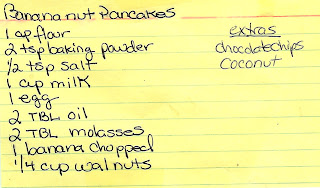 Banana nut Pancakes
1 cp flour
2 tsp baking powder
1/2 tsp salt
1 cup milk
1 egg
2 TBL oil
2 TBL molasses
1 banana chopped
1/4 cup walnuts
extras
chocolate chips
coconut